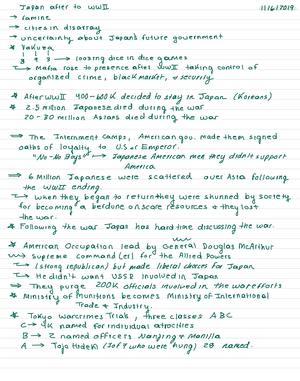 Japan after to WWII
11/6/2019
→ famine
→ cities in disarray
→ uncertainty about Japan's future government
* Yakuza
8 9 3 → loosing dice in dice games
→ Mafia rose to presence after WWII taking control of
organized crime, black market, & security
* After WWII 400-600K decided to stay in Japan (Koreans)
* 2.5 million Japanese died during the war
20-30 million Asians died during the war
⇒ The Internment Camps, American gov. made them signed
oaths of loyalty to U.S or Emperor.
"No-No Boys" → Japanese American men they didn't support
America
⇒ 6 Million Japanese were scattered over Asia following
the WWII ending.
→ when they began to return they were shunned by society
for becoming a berdune on scare resources & they lost
the war.
* Following the war Japan has hard time discussing the war.
* American Occupation lead by General Douglas McArthur
→ Supreme Command(er) for the Allied Powers
→ (strong republican) but made liberal choices for Japan
→ He didn't want USSR involved in Japan
→ They purge 200K officials involved in the war efforts
* Ministry of Munitions becomes Ministry of International
Trade & Industry.
* Tokyo Warcrimes Trials, three classes ABC
C → 4K named for individual atrocities
B → 2 named officers Nanjing & Manilla
A → Tojo Hideki (1 of 7 who were hung) 28 named.